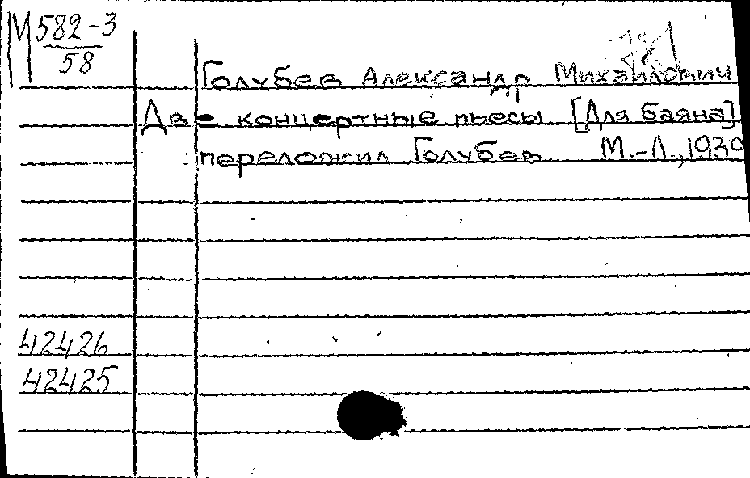 М 582-3
58
Голубев Александр Михайлович
Две концертные пьесы [Для баяна]
переложил Голубев М.-Л., 1939
42426
42425